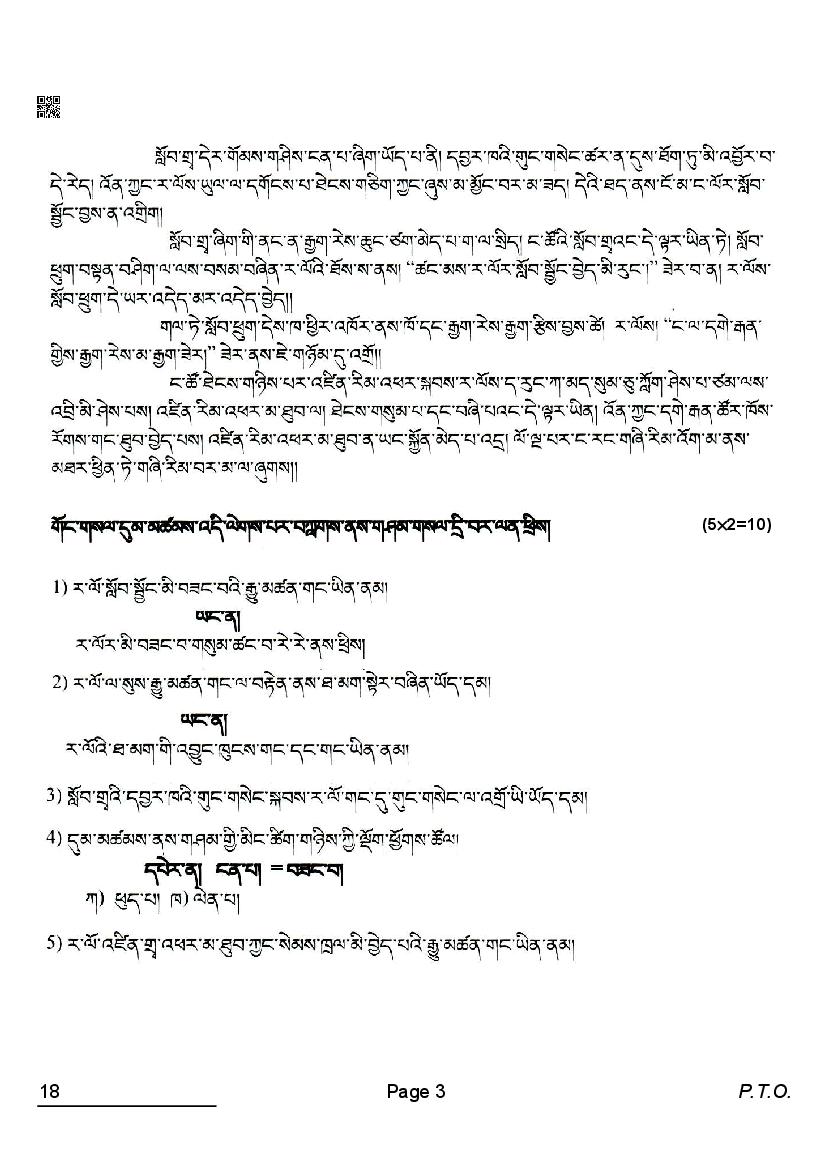 སློབ་གྲྭ་དེར་གོམས་གཤིས་ངན་པ་ཞིག་ཡོད་པ་ནི། དབྱར་ཁའི་གུང་གསེང་ཚར་ན་དུས་ཐོག་ཏུ་མི་འབྱོར་བ་
དེ་རེད། འོན་ཀྱང་ར་ལོས་ཡུལ་ལ་དགོངས་པ་ཐེངས་གཅིག་ཀྱང་ཞུས་མ་མྱོང་བར་མ་ཟད། དེའི་ཐད་ནས་ངོ་མ་ང་ལོར་སློབ་
སྦྱོང་བྱས་ན་འགྲིག།
སློབ་གྲྭ་ཞིག་གི་ནང་ན་རྒྱག་རེས་ཆུང་ཙག་མེད་པ་ག་ལ་སྲིད། ང་ཚོའི་སློབ་གྲྭའང་དེ་ལྟར་ཡིན་ཏེ། སློབ་
ཕྲུག་བསྟན་བཤིག་ལ་ལས་བསམ་བཞིན་ར་ལོའི་ཐོས་ས་ནས། “ཚང་མས་ར་ལོར་སློབ་སྦྱོང་བྱེད་མི་རུང་།” ཟེར་བ་ན། ར་ལོས་
སློབ་ཕྲུག་དེ་ཡར་འདེད་མར་འདེད་བྱེད།།
གལ་ཏེ་སློབ་ཕྲུག་དེས་ཁ་ཕྱིར་འཁོར་ནས་ཁོ་དང་རྒྱག་རེས་རྒྱག་རྩིས་བྱས་ཚེ། ར་ལོས། “ང་ལ་དགེ་རྒན་
གྱིས་རྒྱག་རེས་མ་རྒྱག་ཟེར།” ཟེར་ནས་ཇེ་གཉོམ་དུ་འགྲོ།།
ང་ཚོ་ཐེངས་གཉིས་པར་འཛིན་རིམ་འཕར་སྐབས་ར་ལོས་ད་རུང་ཀ་མད་སུམ་ཅུ་ཀློག་ཤེས་པ་ཙམ་ལས་
འབྲི་མི་ཤེས་པས། འཛིན་རིམ་འཕར་མ་ཐུབ་ལ། ཐེངས་གསུམ་པ་དང་བཞི་པའང་དེ་ལྟར་ཡིན། འོན་ཀྱང་དགེ་རྒན་ཚོར་ཁོས་
རོགས་གང་ཐུབ་བྱེད་པས། འཛིན་རིམ་འཕར་མ་ཐུབ་ན་ཡང་སྐྱོན་མེད་པ་འདྲ། ལོ་ལྔ་པར་ང་རང་གཞི་རིམ་འོག་མ་ནས་
མཐར་ཕྱིན་ཏེ་གཞི་རིམ་བར་མ་ལ་ཞུགས།།
གོང་གསལ་དུམ་མཚམས་འདི་ལེགས་པར་བཀླགས་ནས་གཤམ་གསལ་དྲི་བར་ལན་ཕྲིས། (5x2=10)
1) ར་ལོ་སློབ་སྦྱོང་མི་བཟང་བའི་རྒྱུ་མཚན་གང་ཡིན་ནམ།
ཡང་ན།
ར་ལོར་མི་བཟང་བ་གསུམ་ཚང་བ་རེ་རེ་ནས་ཕྲིས།
2) ར་ལོ་ལ་སུས་རྒྱུ་མཚན་གང་ལ་བརྟེན་ནས་ཐ་མག་སྟེར་བཞིན་ཡོད་དམ།
ཡང་ན།
ར་ལོའི་ཐ་མག་གི་འབྱུང་ཁུངས་གང་དང་གང་ཡིན་ནམ།
3) སློབ་གྲྭའི་དབྱར་ཁའི་གུང་གསེང་སྐབས་ར་ལོ་གང་དུ་གུང་གསེང་ལ་འགྲོ་ཡི་ཡོད་དམ།
4) དུམ་མཚམས་ནས་གཤམ་གྱི་མིང་ཚིག་གཉིས་ཀྱི་ལྡོག་ཕྱོགས་ཚོལ།
དཔེར་ན། ངན་པ། = བཟང་བ།
ཀ) ཕུད་པ། ཁ) ལེན་པ།
5) ར་ལོ་འཛིན་གྲྭ་འཕར་མ་ཐུབ་ཀྱང་སེམས་ཁྲལ་མི་བྱེད་པའི་རྒྱུ་མཚན་གང་ཡིན་ནམ།
18 Page 3 P.T.O.